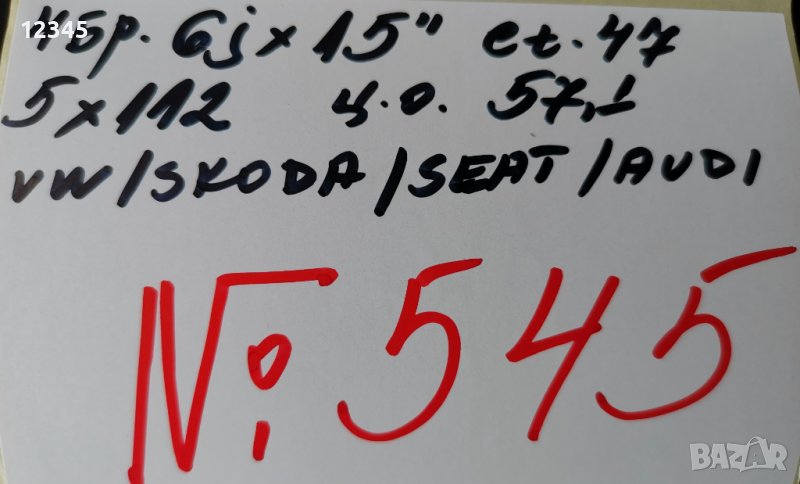 12345
4бр. 6j x 15" et. 47
5 x 112 ц.о. 57,1
VW/SKODA/SEAT/AUDI
№ 545
BAZAR